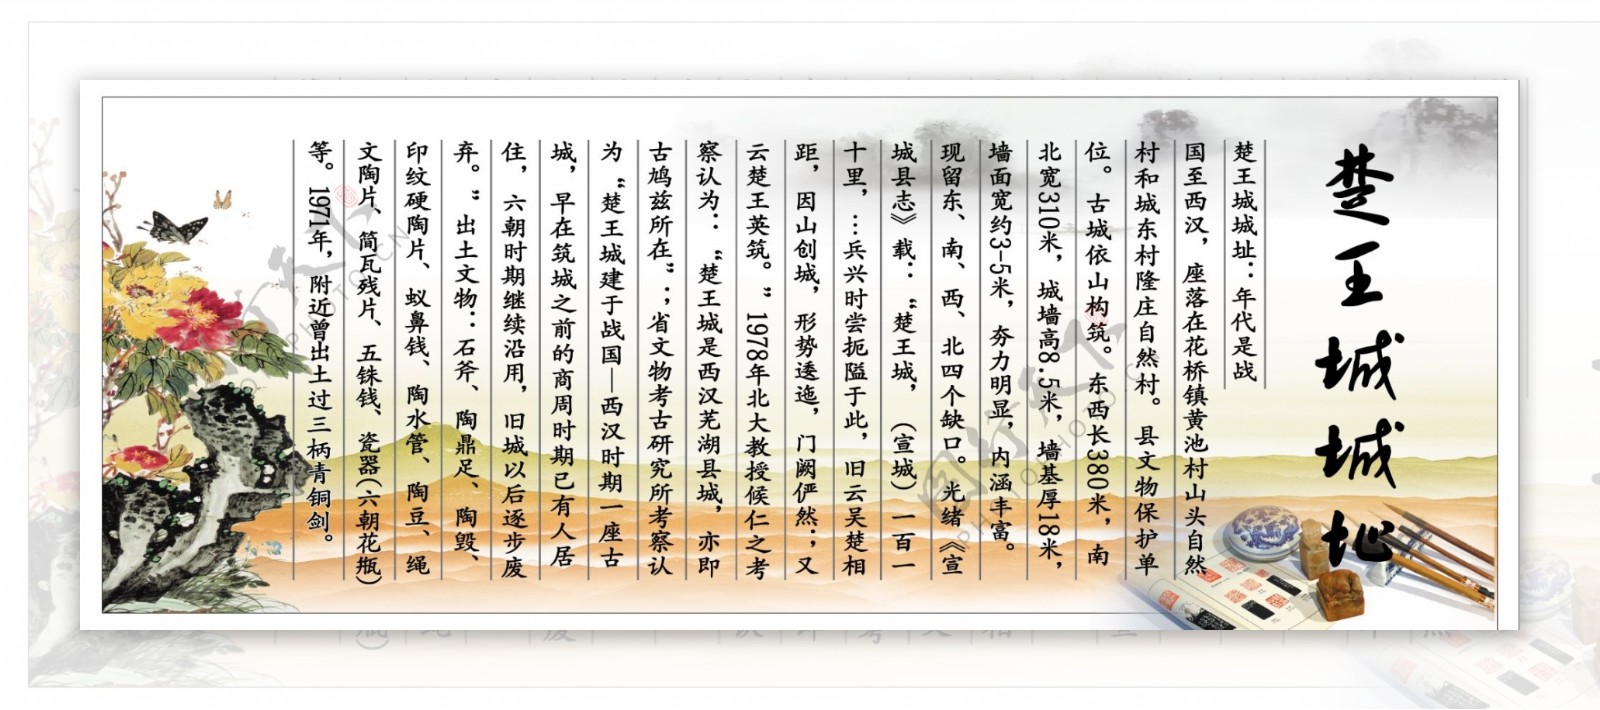 楚王城城址
楚王城城址：年代是战
国至西汉，座落在花桥镇黄池村山头自然
村和城东村隆庄自然村。县文物保护单
位。古城依山构筑。东西长380米，南
北宽310米，城墙高8.5米，墙基厚18米，
墙面宽约3-5米，夯力明显，内涵丰富。
现留东、南、西、北四个缺口。光绪《宣
城县志》载：“楚王城，（宣城）一百一
十里，…兵兴时尝扼隘于此，旧云吴楚相
距，因山创城，形势逶迤，门阙俨然；又
云楚王英筑。”1978年北大教授候仁之考
察认为：“楚王城是西汉芜湖县城，亦即
古鸠兹所在”；省文物考古研究所考察认
为“楚王城建于战国—西汉时期一座古
城，早在筑城之前的商周时期已有人居
住，六朝时期继续沿用，旧城以后逐步废
弃。”出土文物：石斧、陶鼎足、陶毁、
印纹硬陶片、蚁鼻钱、陶水管、陶豆、绳
文陶片、简瓦残片、五铢钱、瓷器(六朝花瓶)
等。1971年，附近曾出土过三柄青铜剑。